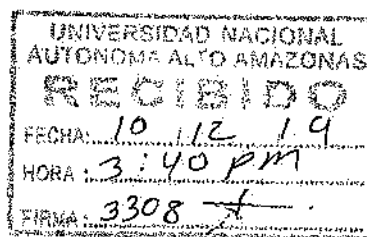 UNIVERSIDAD NACIONAL
AUTONOMA ALTO AMAZONAS
RECIBIDO
FECHA: 10 12 19
HORA: 3:40 pm
FIRMA: 3308